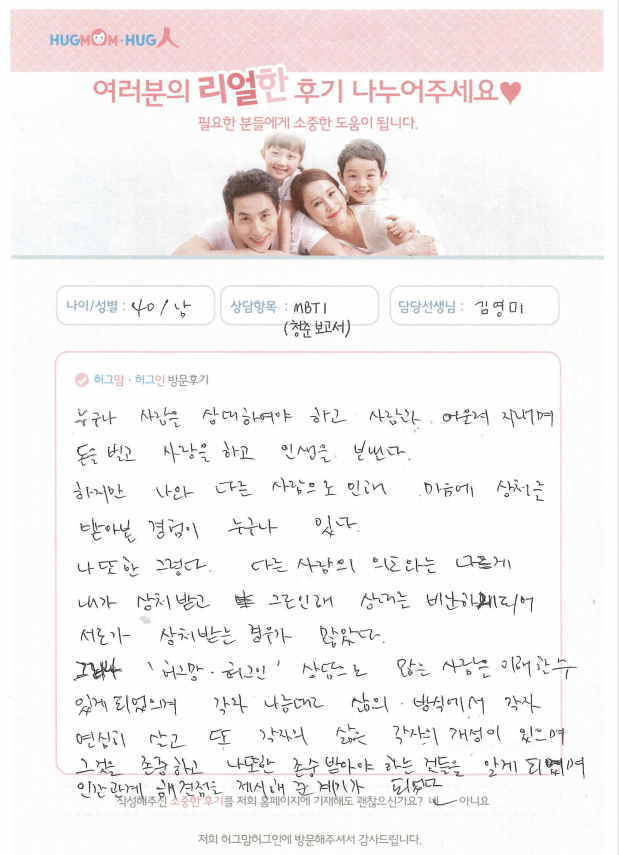 HUGMOM·HUG人
여러분의 리얼한 후기 나누어주세요♥
필요한 분들에게 소중한 도움이 됩니다.
나이/성별 : 40 / 남
상담항목 : MBTI
(청춘 보고서)
담당선생님 : 김영미
허그맘 · 허그인 방문후기
누구나 사람을 상대하여야 하고 사람과 어울려 지내며
돈을 벌고 사랑을 하고 인생을 보낸다.
하지만 나와 다른 사람으로 인해 마음에 상처를
받아본 경험이 누구나 있다.
나 또한 그렇다. 다른 사람의 의도와는 다르게
내가 상처받고 그로인해 상대는 비난하게되어
서로가 상처받는 경우가 많았다.
'허그맘 · 허그인' 상담으로 많은 사람을 이해할수
있게 되었으며 각자 나름대로 삶의 방식에서 각자
열심히 살고 또 각자의 삶은 각자의 개성이 있으며
그것을 존중하고 나또한 존중 받아야 하는 것들을 알게 되었으며
인간관계 해결점을 제시해 준 계기가 되었다
작성해주신 소중한 후기를 저희 홈페이지에 기재해도 괜찮으신가요? 네 아니요
저희 허그맘허그인에 방문해주셔서 감사드립니다.